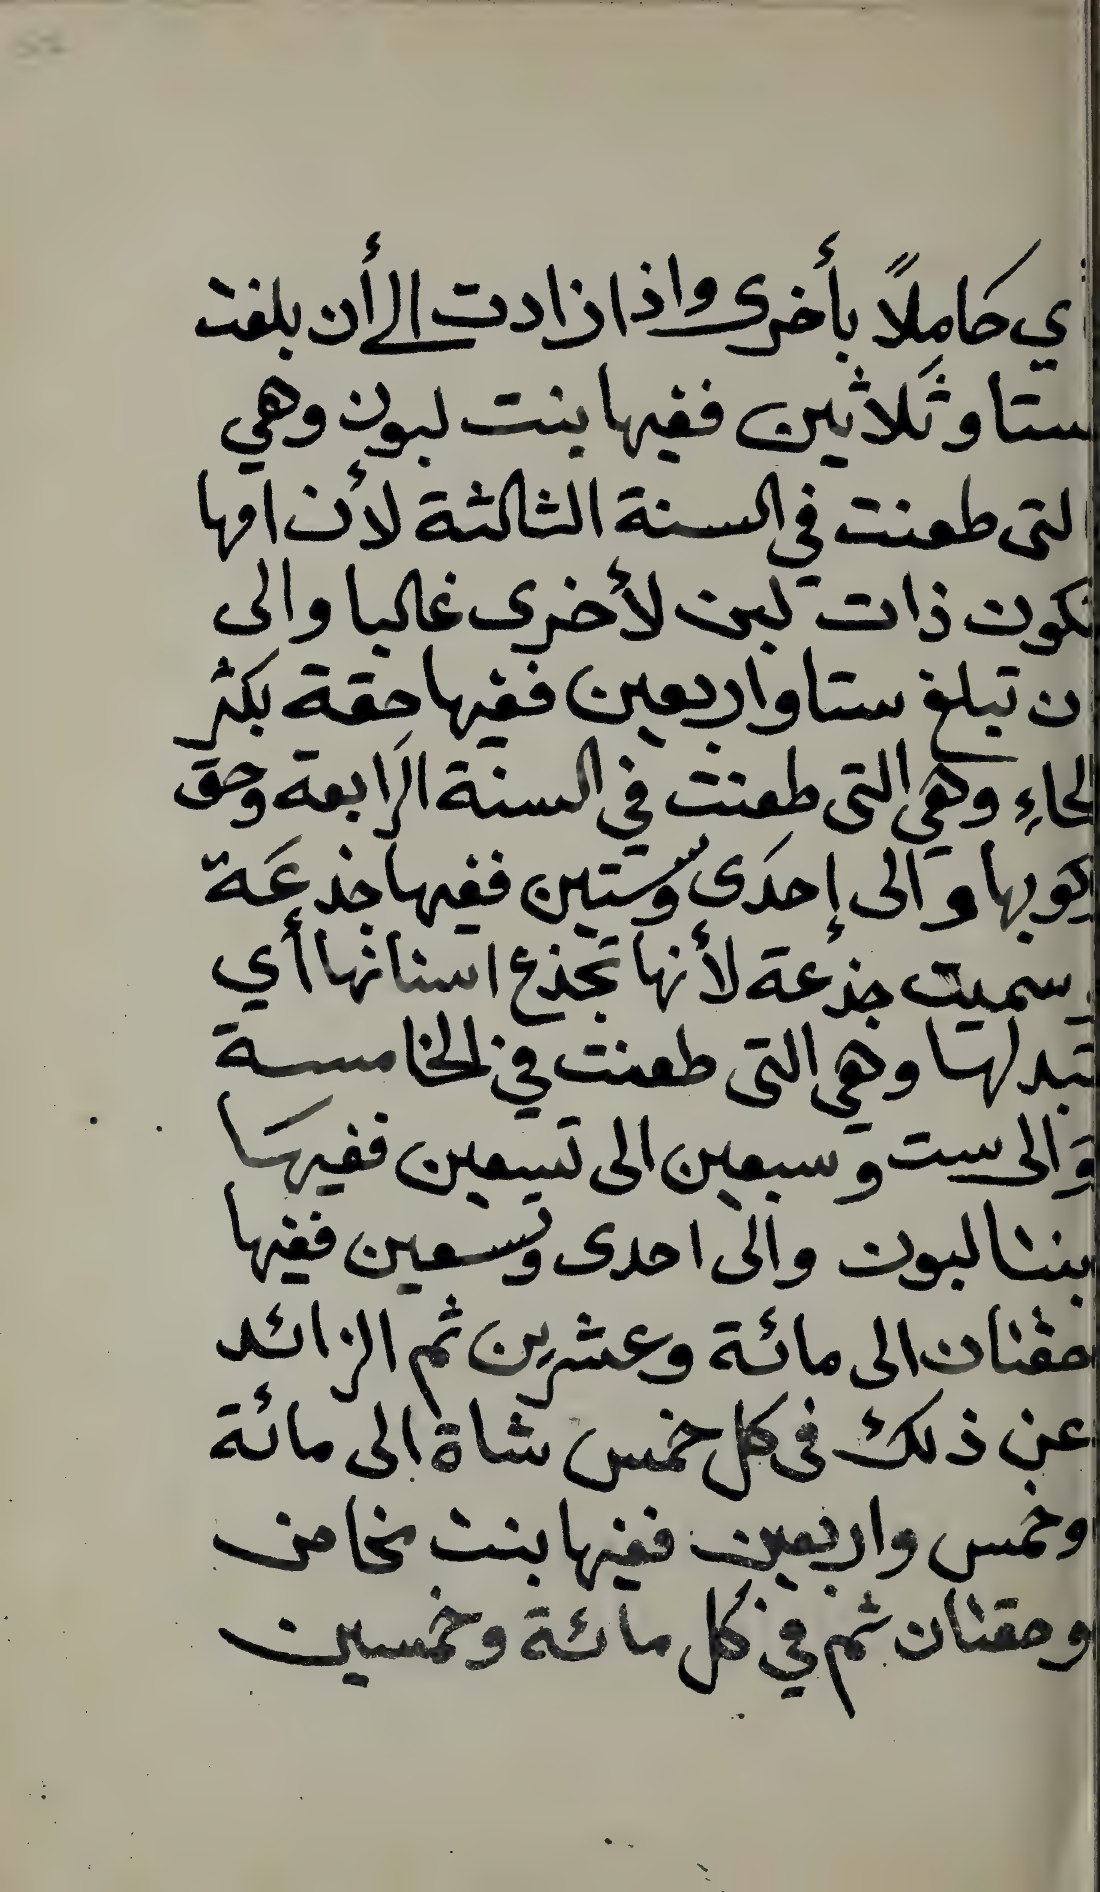 ي حاملاً بأخرى واذا زادت الى أن بلغت
ستا وثلاثين ففيها بنت لبون وهي
التى طعنت في السنة الثالثة لأن امها
تكون ذات لبن لأخرى غالبا والى
ن تبلغ ستا واربعين ففيها حقة بكثر
الحاءِ وهي التى طعنت في السنة الرَابعة وحق
ركوبها والى إحدَى وستين ففيها جذعَة
وسميت جذعة لأنها تجذع اسنانها أي
تبدلها وهي التى طعنت في الخامسة
وَالى ست وسبعين الى تسعين ففيها
بنتا لبون والى احدى وتسعين ففيها
حقتان الى مائة وعشرين ثم الزائد
عن ذلك فى كل خمس شاة الى مائة
وخمس واربعين ففيها بنت مخاض
وحقتان ثم في كل مائة وخمسين